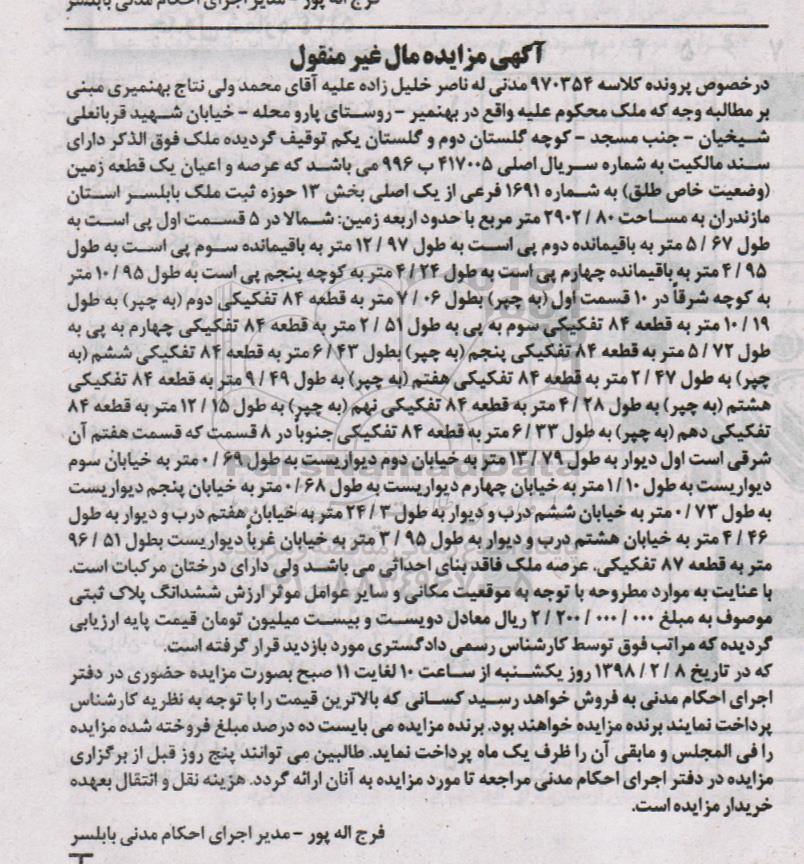 فرج اله پور - مدیر اجرای احکام مدنی بابلسر
آگهی مزایده مال غیر منقول
درخصوص پرونده کلاسه ۹۷۰۳۵۴ مدنی له ناصر خلیل زاده علیه آقای محمد ولی نتاج بهنمیری مبنی
بر مطالبه وجه که ملک محکوم علیه واقع در بهنمیر - روستای پارو محله - خیابان شهید قربانعلی
شیخیان - جنب مسجد - کوچه گلستان دوم و گلستان یکم توقیف گردیده ملک فوق الذکر دارای
سند مالکیت به شماره سریال اصلی ۴۱۷۰۰۵ ب ۹۹۶ می باشد که عرصه و اعیان یک قطعه زمین
(وضعیت خاص طلق) به شماره ۱۶۹۱ فرعی از یک اصلی بخش ۱۳ حوزه ثبت ملک بابلسر استان
مازندران به مساحت ۸۰ / ۲۹۰۲ متر مربع با حدود اربعه زمین: شمالا در ۵ قسمت اول پی است به
طول ۶۷ / ۵ متر به باقیمانده دوم پی است به طول ۹۷ / ۱۲ متر به باقیمانده سوم پی است به طول
۹۵ / ۴ متر به باقیمانده چهارم پی است به طول ۲۴ / ۴ متر به کوچه پنجم پی است به طول ۹۵ / ۱۰ متر
به کوچه شرقاً در ۱۰ قسمت اول (به چپر) بطول ۰۶ / ۷ متر به قطعه ۸۴ تفکیکی دوم (به چپر) به طول
۱۹ / ۱۰ متر به قطعه ۸۴ تفکیکی سوم به پی به طول ۵۱ / ۲ متر به قطعه ۸۴ تفکیکی چهارم به پی به
طول ۷۲ / ۵ متر به قطعه ۸۴ تفکیکی پنجم (به چپر) بطول ۴۳ / ۶ متر به قطعه ۸۴ تفکیکی ششم (به
چپر) به طول ۴۷ / ۲ متر به قطعه ۸۴ تفکیکی هفتم (به چپر) به طول ۴۹ / ۹ متر به قطعه ۸۴ تفکیکی
هشتم (به چپر) به طول ۲۸ / ۴ متر به قطعه ۸۴ تفکیکی نهم (به چپر) به طول ۱۵ / ۱۲ متر به قطعه ۸۴
تفکیکی دهم (به چپر) به طول ۳۳ / ۶ متر به قطعه ۸۴ تفکیکی جنوباً در ۸ قسمت که قسمت هفتم آن
شرقی است اول دیوار به طول ۷۹ / ۱۳ متر به خیابان دوم دیواریست به طول ۶۹ / ۰ متر به خیابان سوم
دیواریست به طول ۱۰ / ۱ متر به خیابان چهارم دیواریست به طول ۶۸ / ۰ متر به خیابان پنجم دیواریست
به طول ۷۳ / ۰ متر به خیابان ششم درب و دیوار به طول ۳ / ۲۴ متر به خیابان هفتم درب و دیوار به طول
۴۶ / ۴ متر به خیابان هشتم درب و دیوار به طول ۹۵ / ۳ متر به خیابان غرباً دیواریست بطول ۵۱ / ۹۶
متر به قطعه ۸۷ تفکیکی. عرصه ملک فاقد بنای احداثی می باشد ولی دارای درختان مرکبات است.
با عنایت به موارد مطروحه با توجه به موقعیت مکانی و سایر عوامل موثر ارزش ششدانگ پلاک ثبتی
موصوف به مبلغ ۰۰۰ / ۰۰۰ / ۲۰۰ / ۲ ریال معادل دویست و بیست میلیون تومان قیمت پایه ارزیابی
گردیده که مراتب فوق توسط کارشناس رسمی دادگستری مورد بازدید قرار گرفته است.
که در تاریخ ۸ / ۲ / ۱۳۹۸ روز یکشنبه از ساعت ۱۰ لغایت ۱۱ صبح بصورت مزایده حضوری در دفتر
اجرای احکام مدنی به فروش خواهد رسید کسانی که بالاترین قیمت را با توجه به نظریه کارشناس
پرداخت نمایند برنده مزایده خواهند بود. برنده مزایده می بایست ده درصد مبلغ فروخته شده مزایده
را فی المجلس و مابقی آن را ظرف یک ماه پرداخت نماید. طالبین می توانند پنج روز قبل از برگزاری
مزایده در دفتر اجرای احکام مدنی مراجعه تا مورد مزایده به آنان ارائه گردد. هزینه نقل و انتقال بعهده
خریدار مزایده است.
فرج اله پور - مدیر اجرای احکام مدنی بابلسر